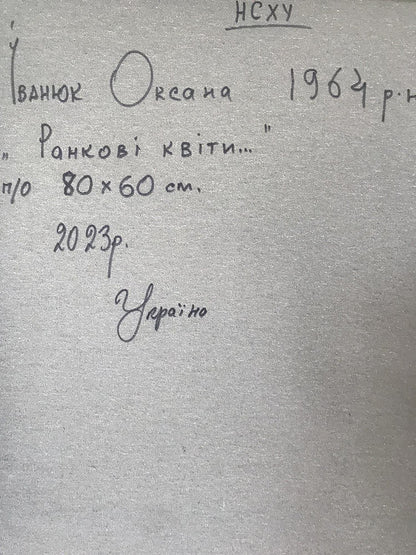 НСХУ
Іванюк Оксана 1964 р.н
„Ранкові квіти..."
п/о 80х60 см.
2023р.
Україна